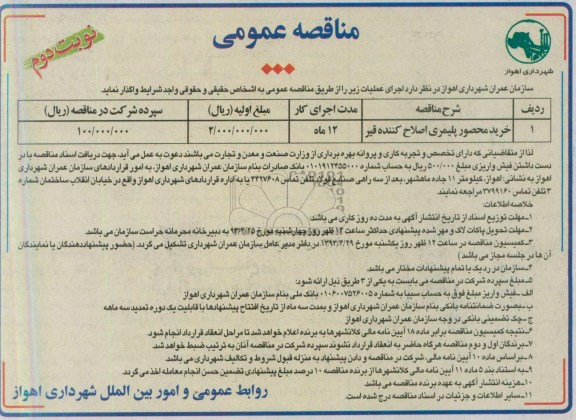 مناقصه عمومی
نوبت دوم
شهرداری اهواز
سازمان عمران شهرداری اهواز در نظر دارد اجرای عملیات زیر را از طریق مناقصه عمومی به اشخاص حقیقی و حقوقی واجد شرایط واگذار نماید.
ردیف شرح مناقصه مدت اجرای کار مبلغ اولیه (ریال) سپرده شرکت در مناقصه (ریال)
۱ خرید محصور پلیمری اصلاح کننده قیر ۱۲ ماه ۲/۰۰۰/۰۰۰/۰۰۰ ۱۰۰/۰۰۰/۰۰۰
لذا از متقاضیانی که دارای تخصص و تجربه کاری و پروانه بهره برداری از وزارت صنعت و معدن و تجارت می باشند دعوت به عمل می آید. جهت دریافت اسناد مناقصه با در
دست داشتن فیش واریزی مبلغ ۵۰۰/۰۰۰ ریال به حساب شماره ۰۱۰۱۹۱۲۳۵۵۰۰۰ بانک صادرات بنام سازمان عمران شهرداری اهواز، به امور قراردادهای سازمان عمران شهرداری
اهواز به نشانی: اهواز، کیلومتر ۱۱ جاده ماهشهر، بعد از سه راهی صنایع فولاد تلفن تماس ۴۴۲۷۶۰۸ یا به اداره قراردادهای شهرداری اهواز واقع در خیابان انقلاب ساختمان شماره
۳ تلفن تماس ۳۷۹۹۱۶۰ مراجعه نمایند.
خلاصه اطلاعات
۱-مهلت توزیع اسناد از تاریخ انتشار آگهی به مدت ده روز کاری می باشد.
۲-مهلت تحویل پاکات لاک و مهر شده پیشنهادی حداکثر ساعت ۱۲ ظهر روز چهارشنبه مورخ ۹۳/۲/۲۵ به دبیرخانه محرمانه حراست سازمان می باشد.
۳-کمیسیون مناقصه در ساعت ۱۲ ظهر روز یکشنبه مورخ ۱۳۹۳/۲/۲۹ در دفتر مدیر عامل سازمان عمران شهرداری تشکیل می گردد. (حضور پیشنهاددهندگان یا نمایندگان
آن ها در جلسه مجاز می باشد)
۴-سازمان در رد یک یا تمام پیشنهادات مختار می باشد.
۵-مبلغ سپرده شرکت در مناقصه می بایست به یکی از ۳ طریق ذیل ارائه شود:
الف-فیش واریز مبلغ فوق به حساب سیبا به شماره ۰۱۰۶۰۰۷۵۲۶۰۰۵ بانک ملی بنام سازمان عمران شهرداری اهواز
ب-بصورت ضمانتنامه بانکی بنام سازمان عمران شهرداری اهواز و بمدت سه ماه از تاریخ افتتاح پیشنهادها با قابلیت یک دوره تمدید سه ماهه
ج-چک تضمینی بانکی در وجه سازمان عمران شهرداری اهواز
۶-نتیجه کمیسیون مناقصه برابر ماده ۱۸ آیین نامه مالی کلانشهرها به برنده اعلام خواهد شد تا مراحل انعقاد قرارداد انجام شود.
۷-برندگان اول و دوم مناقصه هرگاه حاضر به انعقاد قرارداد نشوند سپرده شرکت در مناقصه آنان به ترتیب ضبط خواهد شد.
۸-براساس ماده ۱۰ آیین نامه مالی، شرکت در مناقصه و دادن پیشنهاد به منزله قبول شروط و تکالیف شهرداری می باشد.
۹-به استناد بند ۵ ماده ۱۱ آیین نامه مالی کلانشهرها از برنده مناقصه ۱۰ درصد مبلغ پیشنهادی تضمین حسن انجام معامله اخذ می گردد.
۱۰-هزینه انتشار آگهی به عهده برنده مناقصه می باشد.
۱۱-سایر اطلاعات و جزئیات در اسناد مناقصه درج شده است.
روابط عمومی و امور بین الملل شهرداری اهواز